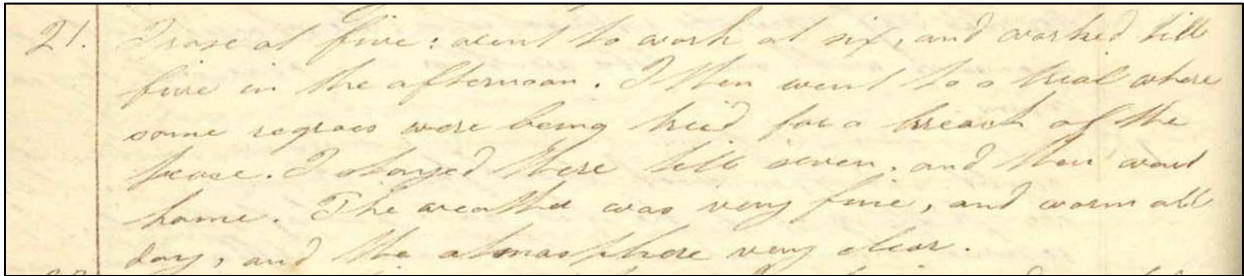 21. I rose at five: went to work at six, and worked till
five in the afternoon. I then went to a trial where
some negroes were being tried for a breach of the
peace. I stayed there till seven, and then went
home. The weather was very fine, and warm all
day, and the atmosphere very clear.